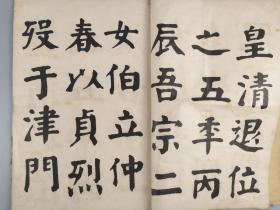 皇清退位
之五季丙
辰吾宗二
女伯立仲
春以貞烈
歿于津門